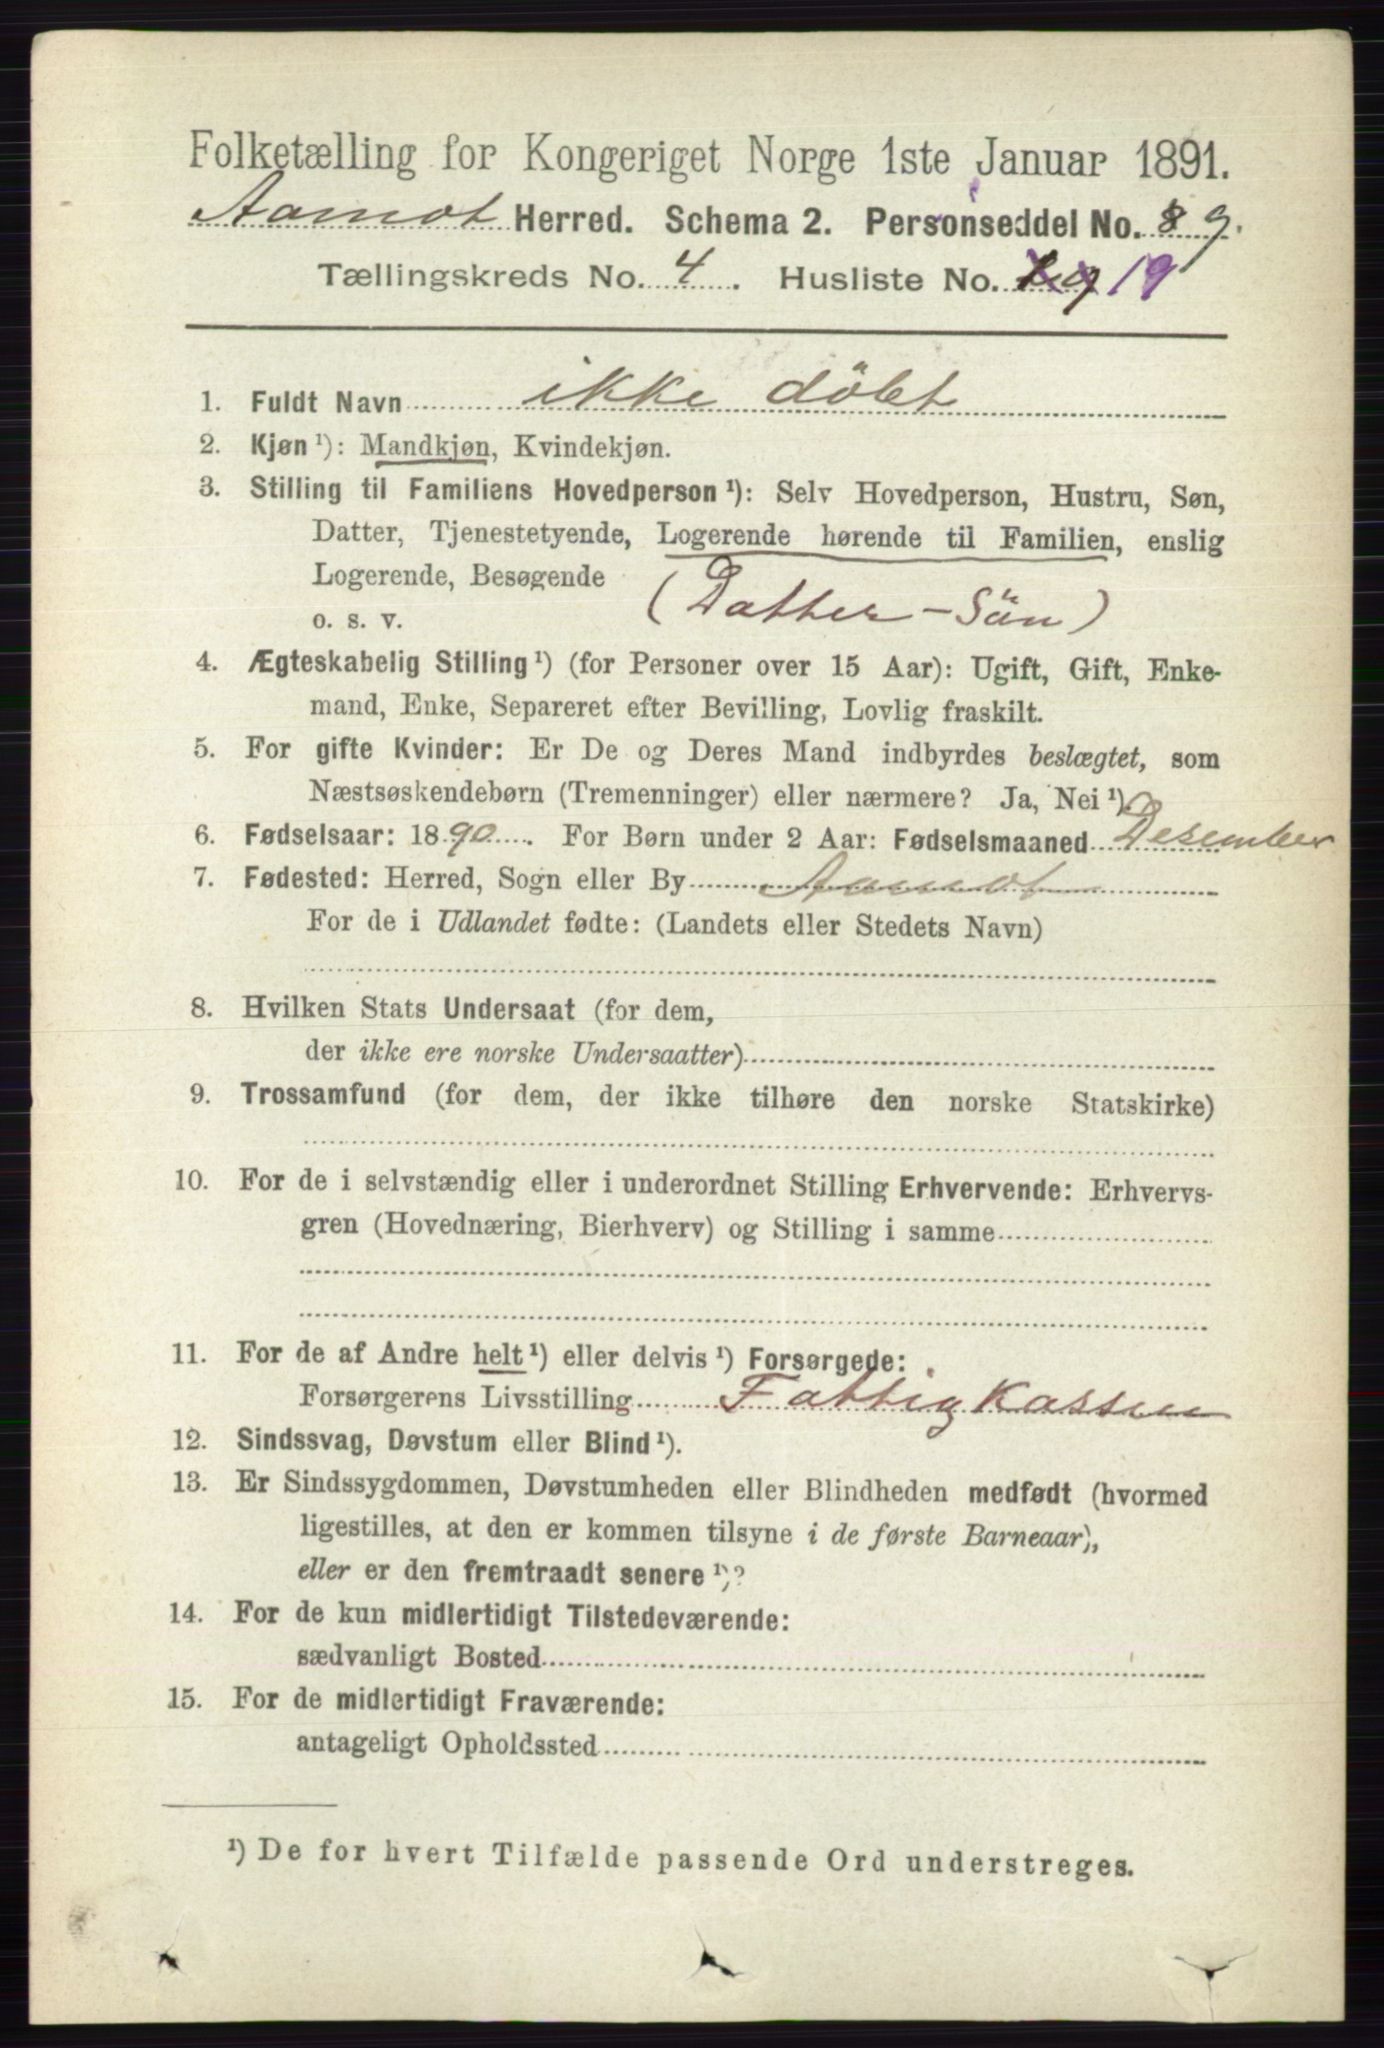 Folketælling for Kongeriget Norge 1ste Januar 1891.
Aamot Herred. Schema 2. Personseddel No. 9.
Tællingskreds No. 4. Husliste No. 19
1. Fuldt Navn ikke döbt
2. Kjøn ¹): Mandkjøn, Kvindekjøn.
3. Stilling til Familiens Hovedperson ¹): Selv Hovedperson, Hustru, Søn,
Datter, Tjenestetyende, Logerende hørende til Familien, enslig
Logerende, Besøgende
o. s. v. (Datter-Sön)
4. Ægteskabelig Stilling ¹) (for Personer over 15 Aar): Ugift, Gift, Enke-
mand, Enke, Separeret efter Bevilling, Lovlig fraskilt.
5. For gifte Kvinder: Er De og Deres Mand indbyrdes beslægtet, som
Næstsøskendebørn (Tremenninger) eller nærmere? Ja, Nei ¹)
6. Fødselsaar: 1890. For Børn under 2 Aar: Fødselsmaaned Desember
7. Fødested: Herred, Sogn eller By Aamot
For de i Udlandet fødte: (Landets eller Stedets Navn)
8. Hvilken Stats Undersaat (for dem,
der ikke ere norske Undersaatter)
9. Trossamfund (for dem, der ikke tilhøre den norske Statskirke)
10. For de i selvstændig eller i underordnet Stilling Erhvervende: Erhvervs-
gren (Hovednæring, Bierhverv) og Stilling i samme
11. For de af Andre helt ¹) eller delvis ¹) Forsørgede:
Forsørgerens Livsstilling Fattigkassen
12. Sindssvag, Døvstum eller Blind ¹).
13. Er Sindssygdommen, Døvstumheden eller Blindheden medfødt (hvormed
ligestilles, at den er kommen tilsyne i de første Barneaar),
eller er den fremtraadt senere ¹)?
14. For de kun midlertidigt Tilstedeværende:
sædvanligt Bosted
15. For de midlertidigt Fraværende:
antageligt Opholdssted
¹) De for hvert Tilfælde passende Ord understreges.